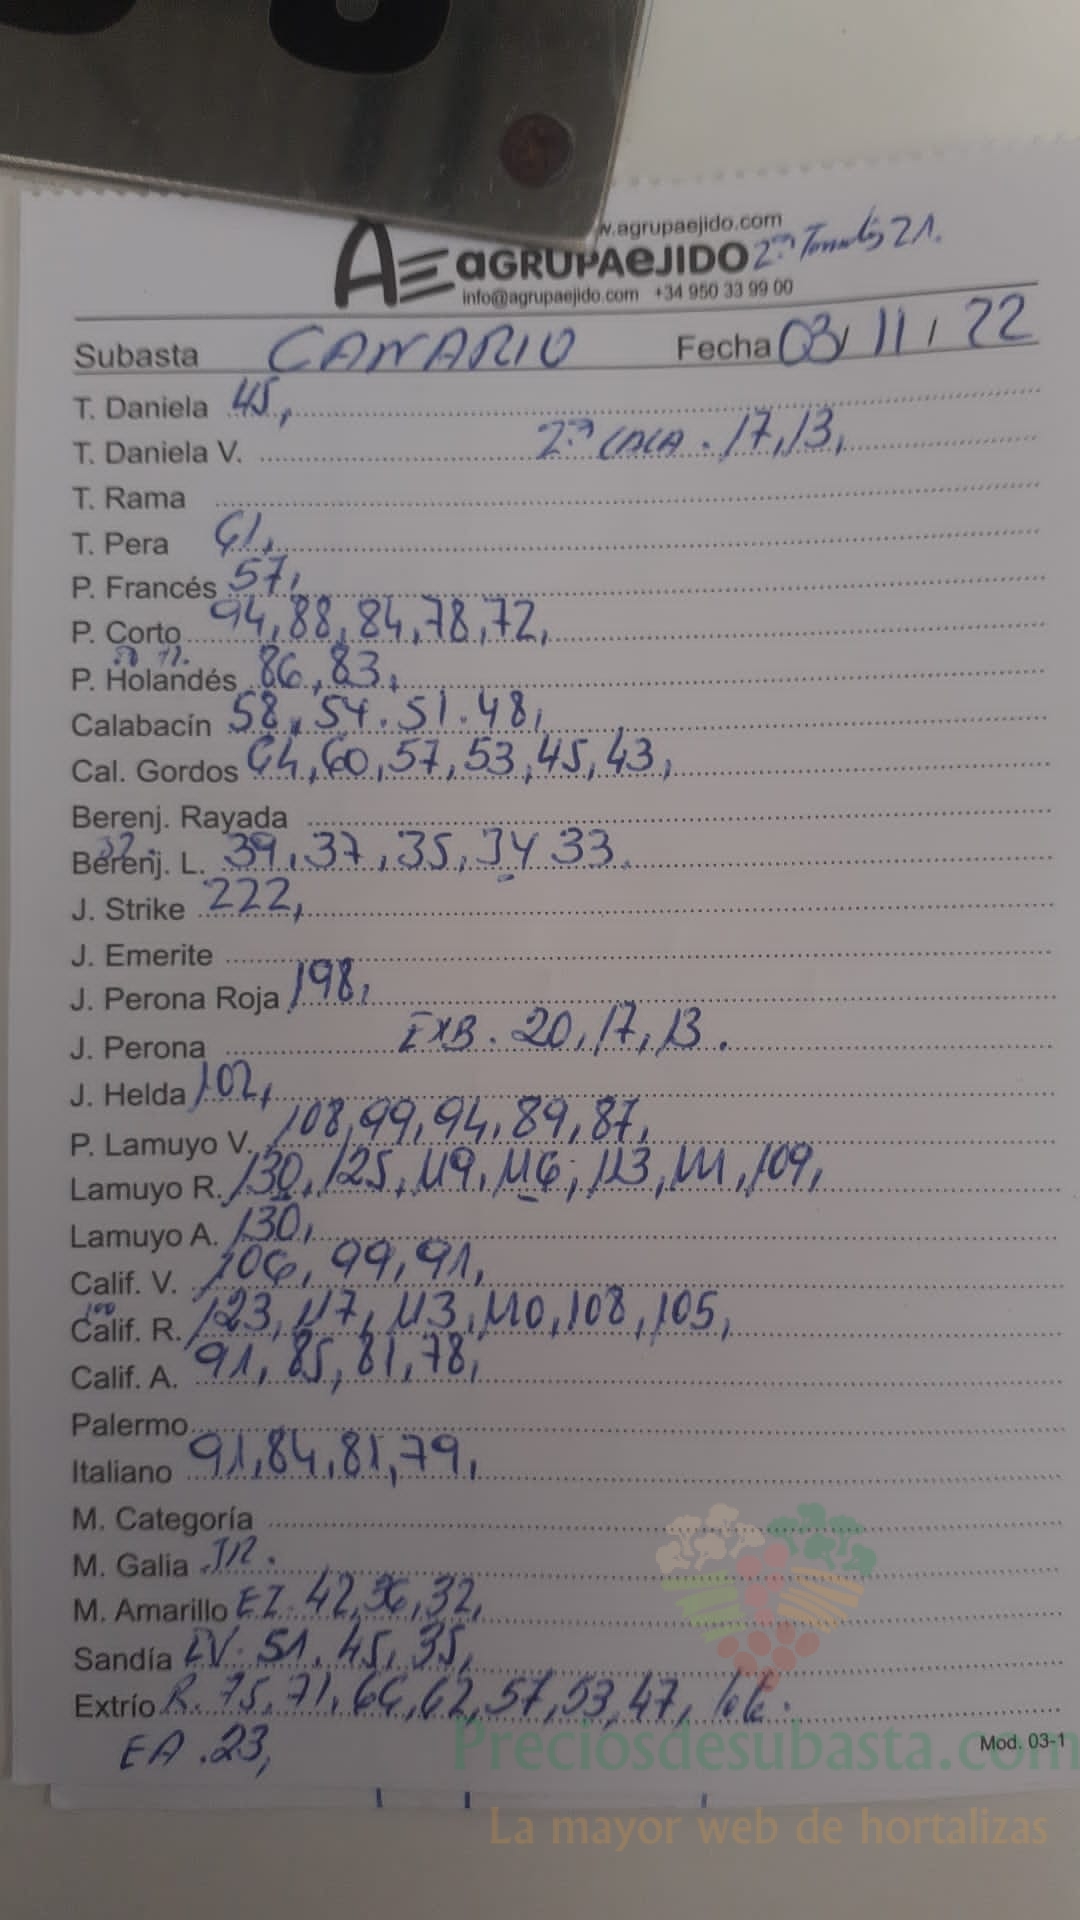 w.agrupaejido.com
AE aGRUPAeJIDO 2ª Tomate 21.
info@agrupaejido.com +34 950 33 99 00
Subasta CANARIO Fecha 03/11/22
T. Daniela 45,
T. Daniela V. 2ª CALA. 17,13,
T. Rama
T. Pera 61,
P. Francés 57,
P. Corto 94,88,84,78,72,
P. Holandés 86,83,
Calabacín 58,54.51.48,
Cal. Gordos 64,60,57,53,45,43,
Berenj. Rayada
Berenj. L. 39,37,35,34 33.
32.
J. Strike 222,
J. Emerite
J. Perona Roja 198,
J. Perona EXB. 20,17,13.
J. Helda 102,
P. Lamuyo V. 108,99,94,89,87,
Lamuyo R. 130,125,119,116,113,111,109,
Lamuyo A. 130,
Calif. V. 106,99,91,
100
Calif. R. 123,117,113,110,108,105,
Calif. A. 91,85,81,78,
Palermo
Italiano 91,84,81,79,
M. Categoría
M. Galia
M. Amarillo EZ. 42,36,32,
Sandía EV. 51,45,35,
Extrío R. 75,71,66,62,57,53,47,
EA.23,
Mod. 03-1
Preciosdesubasta.com
La mayor web de hortalizas